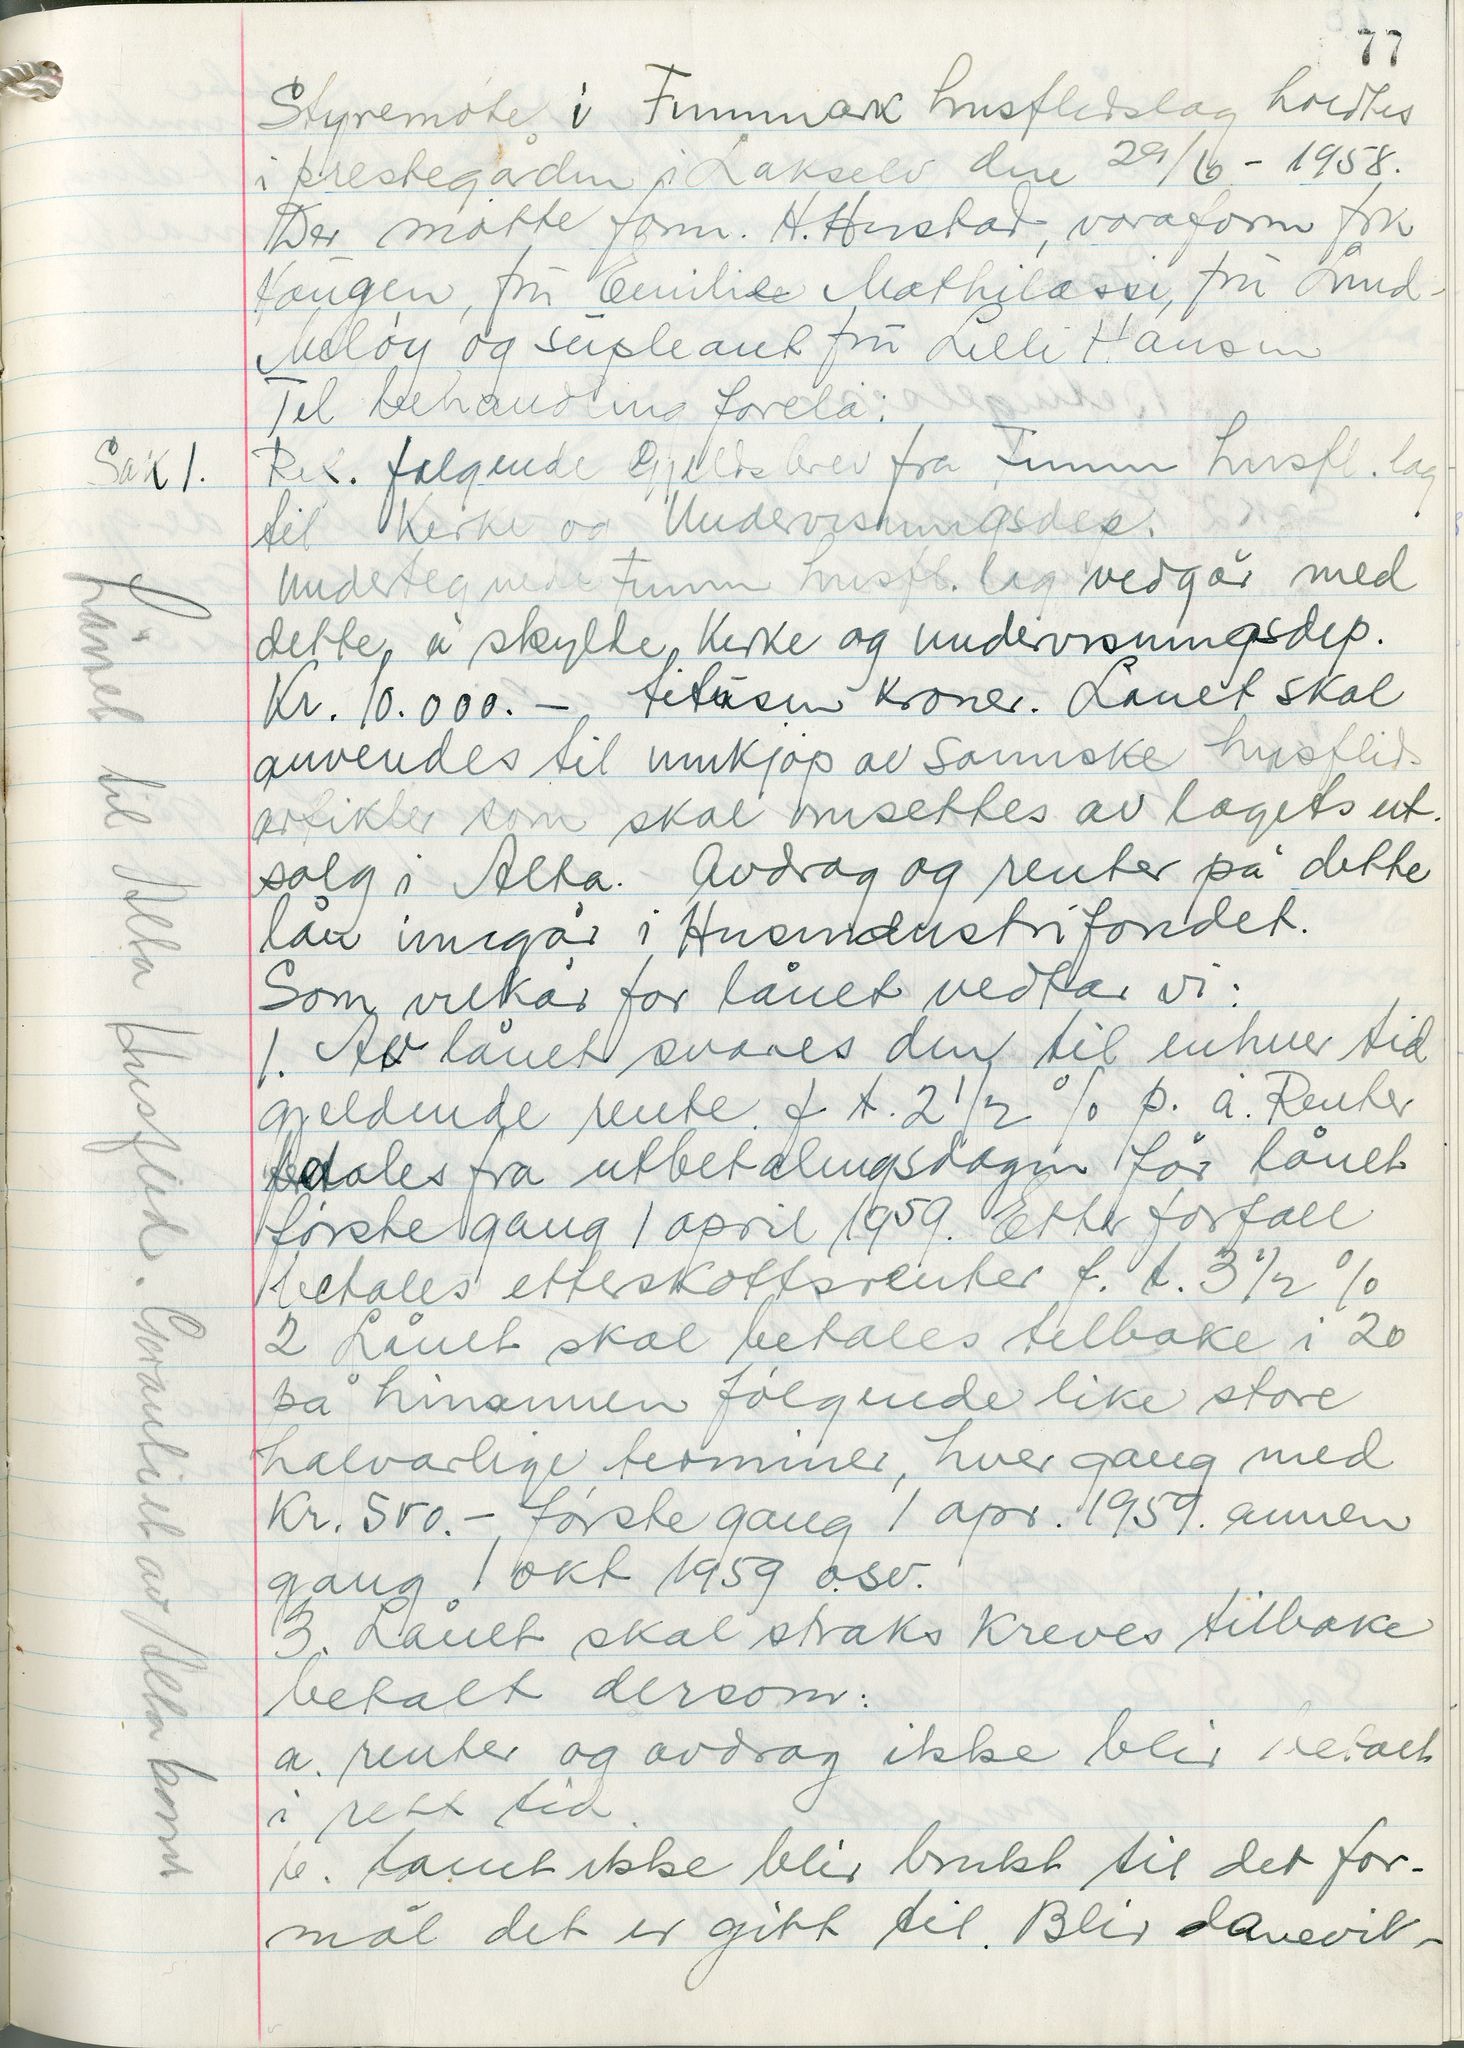 77
Styremøte i Finnmark husflidslag holdtes
i prestegården i Lakselv den 29/6 - 1958.
Der møtte form. H. Hustad, varaform frk
Haugen, fru Emilie Mathilassi, fru Lund-
Meløy og supleant fru Lilli Hansen
Til behandling forelå:
Sak 1. Ref. følgende Gjeldsbrev fra Finnm husfl. lag
til Kirke og Undervisningsdep.
Undertegnede Finnm husfl. lag vedgår med
dette å skylde Kirke og undervisningsdep.
Kr. 10.000.- titusen kroner. Lånet skal
anvendes til innkjøp av samiske husflids
artikler som skal omsettes av lagets ut.
salg i Alta. Avdrag og renter på dette
lån inngår i Husindustrifondet.
Som vilkår for lånet vedtar vi:
1. Av lånet svares den til enhver tid
gjeldende rente f. t. 2 1/2 % p. a. Renter
betales fra utbetalingsdagen for lånet
første gang 1 april 1959. Etter forfall
betales etterskottsrenter f. t. 3 1/2 %
2 Lånet skal betales tilbake i 20
på hinannen følgende like store
halvårlige terminer, hver gang med
Kr. 500.- første gang 1 apr. 1959. annen
gang 1 okt 1959 osv.
3. Lånet skal straks kreves tilbake
betalt dersom:
a. renter og avdrag ikke blir betalt
i rett tid.
b. lånet ikke blir brukt til det for-
mål det er gitt til. Blir lånevil-
Lånet til Alta Husflid. Garantiet av Alta komm